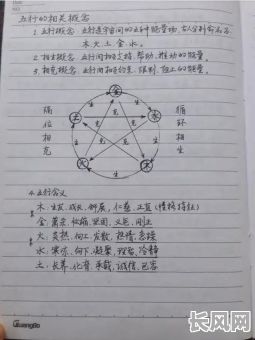 五行的相关概念
1. 五行概念 五行是宇宙间的五种能量物,古人分别命名为
木火土金水。
2. 相生概念 五行间相互支持、帮助、推动的能量。
3. 相克概念 五行间相互约束、限制、阻止的能量。
金
生 生
隔位相克
土 水
循环相生
克 克
生 生
火 木
生
4. 五行含义
木: 生发、成长、舒展、仁慈、正直(性格特征)
金: 肃杀、收敛、坚固、义气、刚正
火: 炎热、向上、发散、热情、急躁
水: 寒凉、向下、凝聚、理智、冷静
土: 长养、化育、承载、诚信、包容
GuangBo
长风网